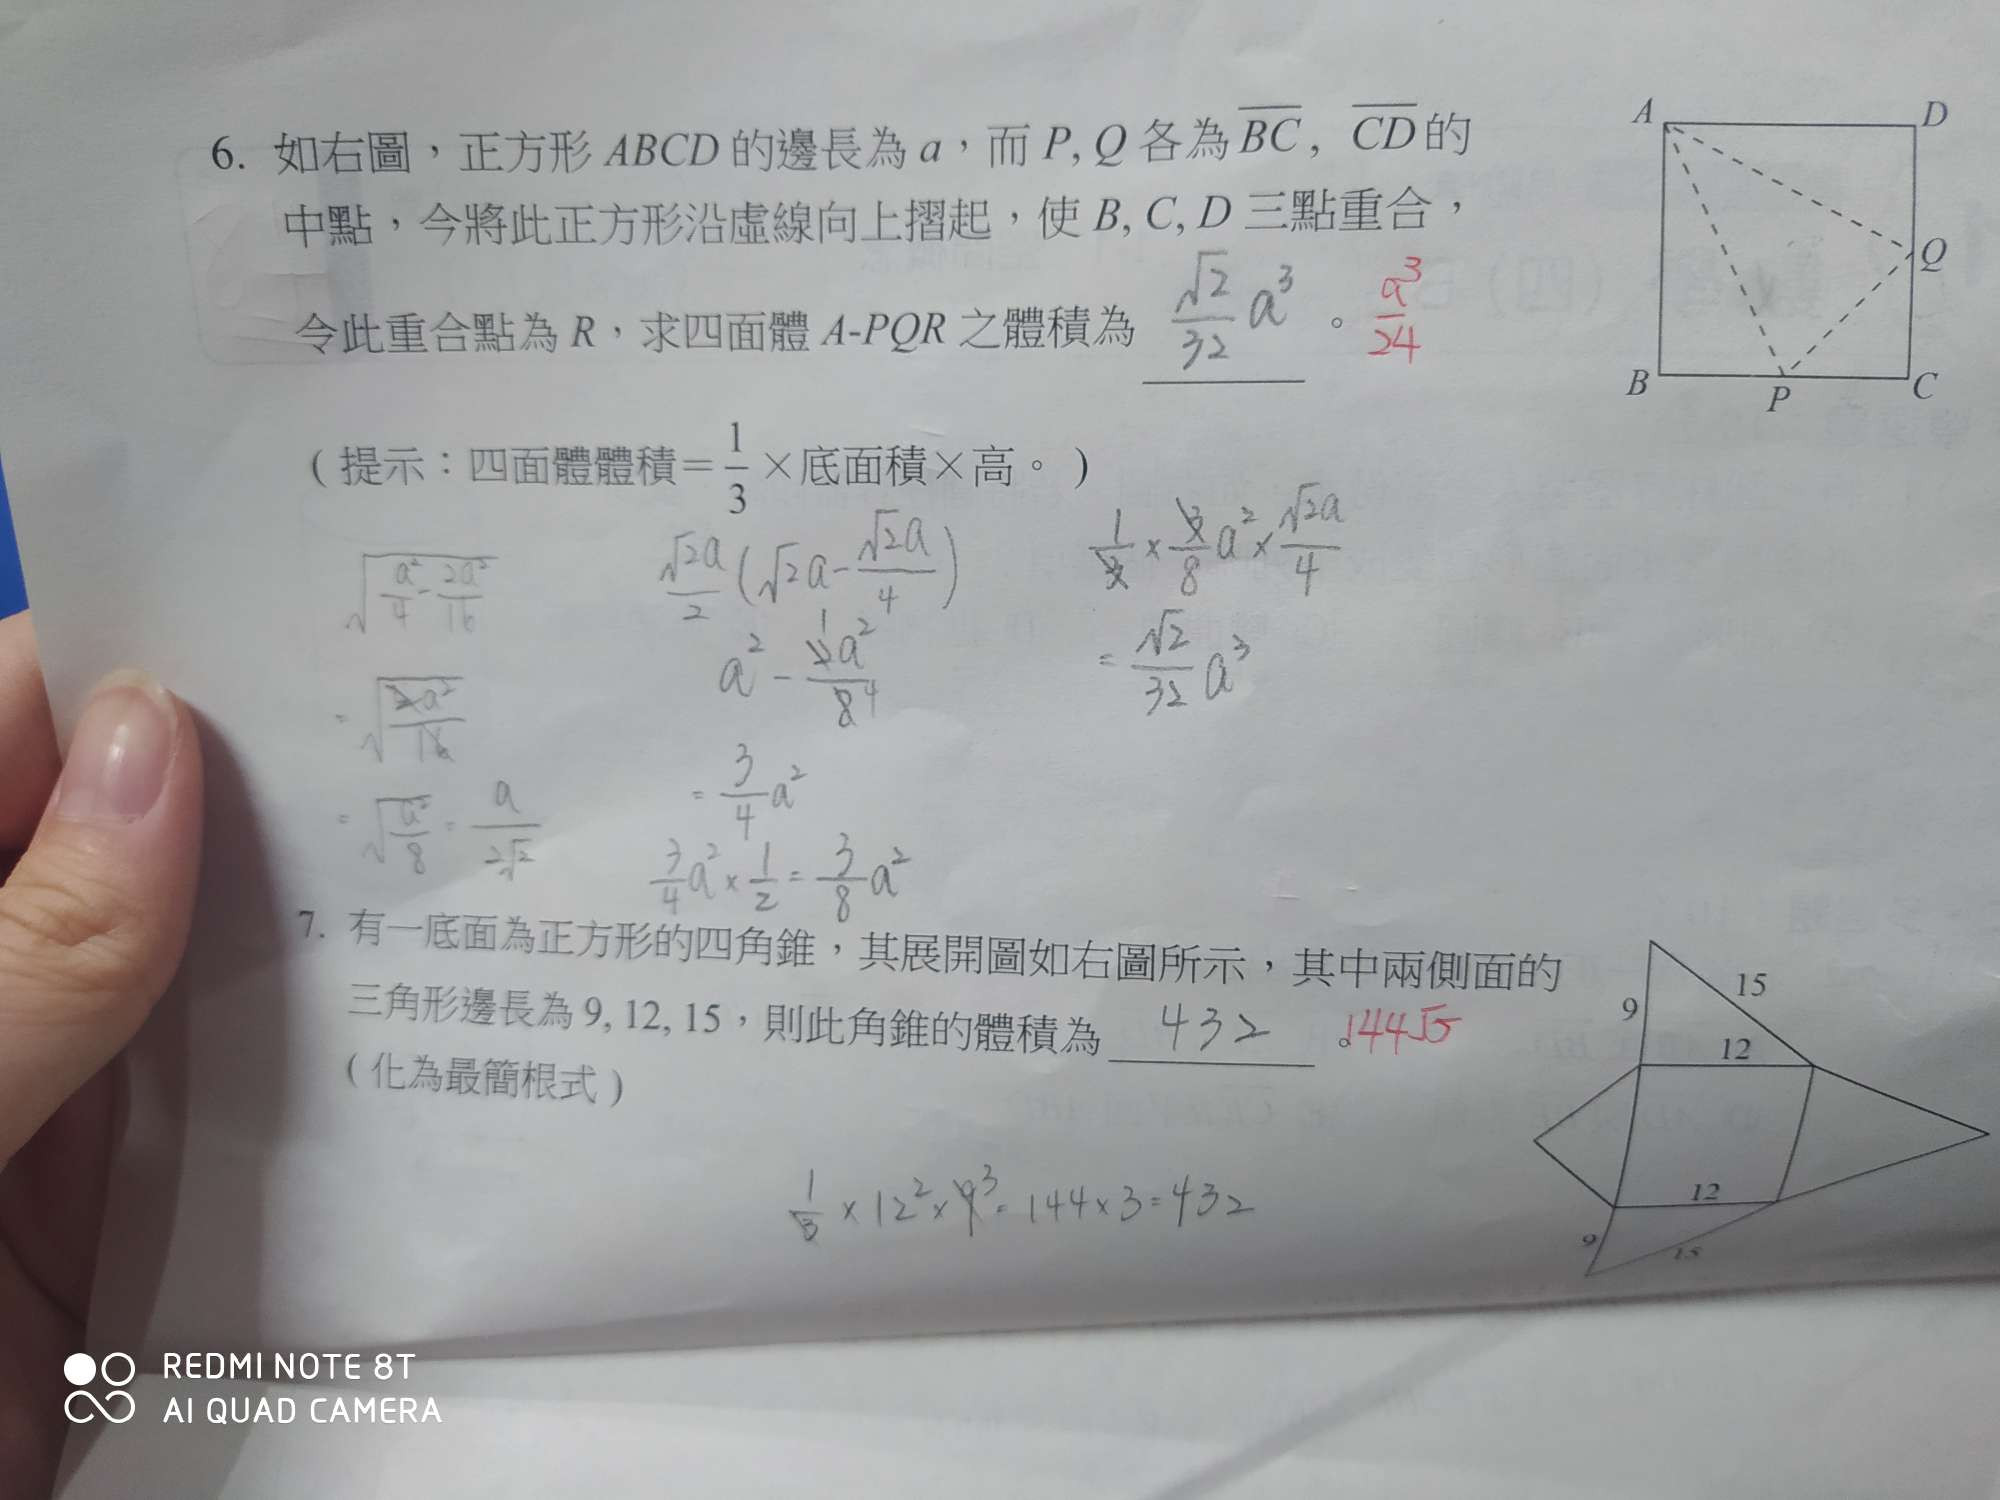 6. 如右圖，正方形 ABCD 的邊長為 a，而 P, Q 各為 BC, CD 的
中點，今將此正方形沿虛線向上摺起，使 B, C, D 三點重合，
令此重合點為 R，求四面體 A-PQR 之體積為 √2/32 a³ 。 a³/24
A D
Q
B P C
(提示：四面體體積＝1/3×底面積×高。)
√(a²/4 - 2a²/16)
= √(2a²/16)
= √(a²/8) = a/2√2
√2a/2 (√2a - √2a/4)
a² - 2a²/8 1 4
= 3/4 a²
3/4 a² × 1/2 = 3/8 a²
1/3 × 3/8 a² × √2a/4
= √2/32 a³
7. 有一底面為正方形的四角錐，其展開圖如右圖所示，其中兩側面的
三角形邊長為 9, 12, 15，則此角錐的體積為 432 。 144√5
(化為最簡根式)
9 15
12
12
9 15
1/3 × 12² × 9 3 = 144 × 3 = 432
REDMI NOTE 8T
AI QUAD CAMERA